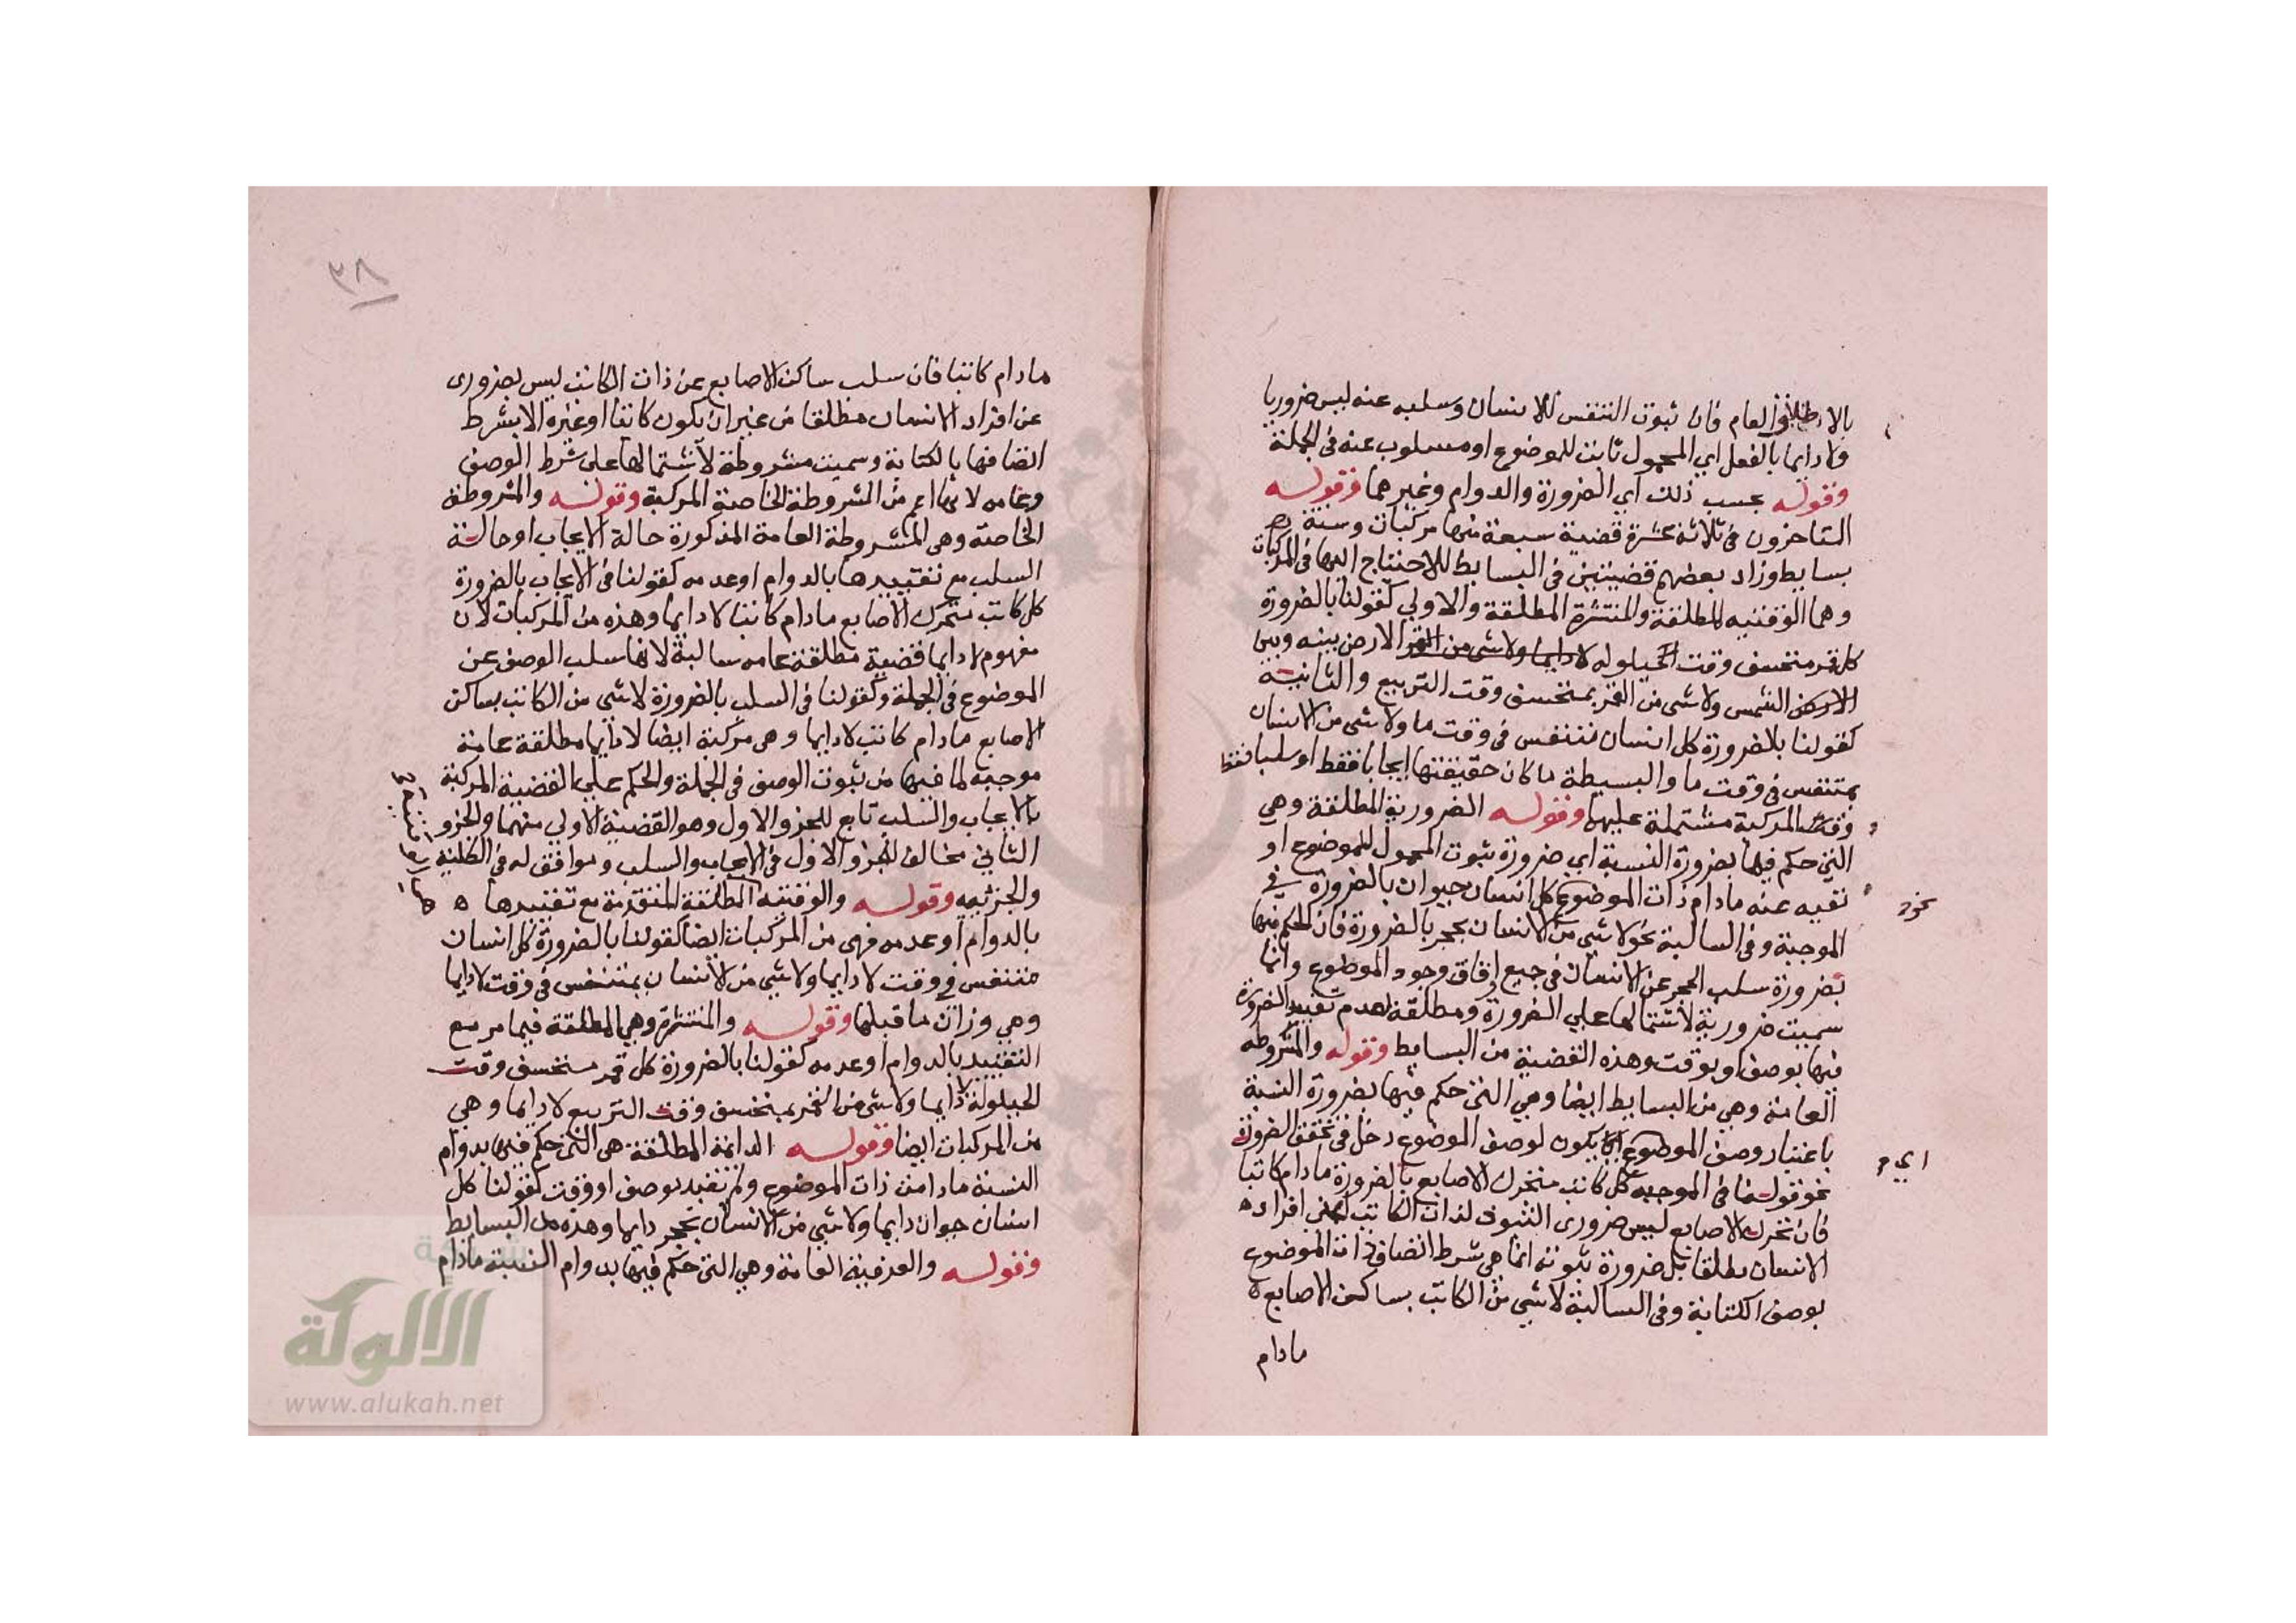 بالاطلاق العام فان ثبوت التنفس للانسان وسلبه عنه ليس ضروريا
ولا دايما بالفعل اي المحمول ثابت للموضوع او مسلوب عنه في الجملة
وقوله بحسب ذلك اي الضرورة والدوام وغيرهما وقوله
المتاخرون في ثلاثة عشرة قضية سبعة منها مركبات وستة
بسايط وزاد بعضهم قضيتين في البسايط للاحتياج اليها في المركبات
وهما الوقتيه المطلقة والمنتشرة المطلقة والاولي كقولنا بالضرورة
كل قمر منخسف وقت الحيلوله لا دايما ولا شي من القمر الارض بينه وبين
الارض الشمس ولا شي من القمر بمنخسف وقت التربيع والثانية
كقولنا بالضرورة كل انسان متنفس في وقت ما ولا شي من الانسان
بمتنفس في وقت ما والبسيطة ما كان حقيقتها ايجابا فقط او سلبا فقط
وقط المركبة مشتملة عليهما وقوله الضرورية المطلقة وهي
التي حكم فيها بضرورة النسبة اي ضرورة ثبوت المحمول للموضوع او
نفيه عنه مادام ذات الموضوع كل انسان حيوان بالضرورة في
نحو
الموجبة وفي السالبة نحو لا شي من الانسان بحجر بالضرورة فان الحكم فيها
بضرورة سلب الحجر عن الانسان في جميع اوقات وجود الموضوع وانما
سميت ضرورية لاشتمالها علي الضرورة ومطلقة لعدم تقييد الضرورة
فيها بوصف او بوقت وهذه القضية من البسايط وقوله والمشروطه
العامة وهي من البسايط ايضا وهي التي حكم فيها بضرورة النسبة
باعتبار وصف الموضوع ان يكون لوصف الموضوع دخل في تحقق الضرورة
اي
نحو قولنا في الموجبه كل كاتب متحرك الاصابع بالضرورة مادام كاتبا
فان تحرك الاصابع ليس ضروري الثبوت لذات الكاتب اعني افراد
الانسان مطلقا بل ضرورة ثبوته انما هي شرط اتصاف ذات الموضوع
بوصف الكتابة وفي السالبة لا شي من الكاتب بساكن الاصابع
مادام
٣٨
مادام كاتبا فان سلب ساكن الاصابع عن ذات الكاتب ليس بضروري
عن افراد الانسان مطلقا من غير ان يكون كاتبا او غيره الا بشرط
اتصافها بالكتابة وسميت مشروطة لاشتمالها على شرط الوصف
وعامه لانها اعم من المشروطة الخاصة المركبة وقوله والمشروطة
الخاصة وهي المشروطة العامة المذكورة حالة الايجاب او حالة
السلب مع تقييدها بالدوام او عدمه كقولنا في الايجاب بالضرورة
كل كاتب متحرك الاصابع مادام كاتبا لا دايما وهذه من المركبات لان
مفهوم لا دايما قضية مطلقة عامه سالبة لانها سلب الوصف عن
الموضوع في الجملة وكقولنا في السلب بالضرورة لا شي من الكاتب بساكن
الاصابع مادام كاتب لا دايما وهي مركبة ايضا لا دايما مطلقة عامة
موجبه لما فيها من ثبوت الوصف في الجملة والحكم علي القضية المركبة
بالايجاب والسلب تابع للجزو الاول وهو القضية الاولي منهما والجزو
الثاني مخالف للجزو الاول في الايجاب والسلب وموافق له في الكلية
والجزئيه وقوله والوقتيه المطلقة المتقدمة مع تقييدها
بالدوام او عدمه فهي من المركبات ايضا كقولنا بالضرورة كل انسان
متنفس في وقت لا دايما ولا شي من الانسان بمتنفس في وقت لا دايما
وهي وزان ما قبلها وقوله والمنتشرة وهي المطلقة فيما مر مع
التقييد بالدوام او عدمه كقولنا بالضرورة كل قمر منخسف وقت
الحيلولة لا دايما ولا شي من القمر بمنخسف وقت التربيع لا دايما وهي
من المركبات ايضا وقوله الدائمة المطلقة هي التي حكم فيها بدوام
النسبة مادامت ذات الموضوع ولم تقيد بوصف او وقت كقولنا كل
انسان حيوان دايما ولا شي من الانسان بحجر دايما وهذه من البسايط
وقوله والعرفية العامة وهي التي حكم فيها بدوام النسبة مادام
الألوكة
www.alukah.net